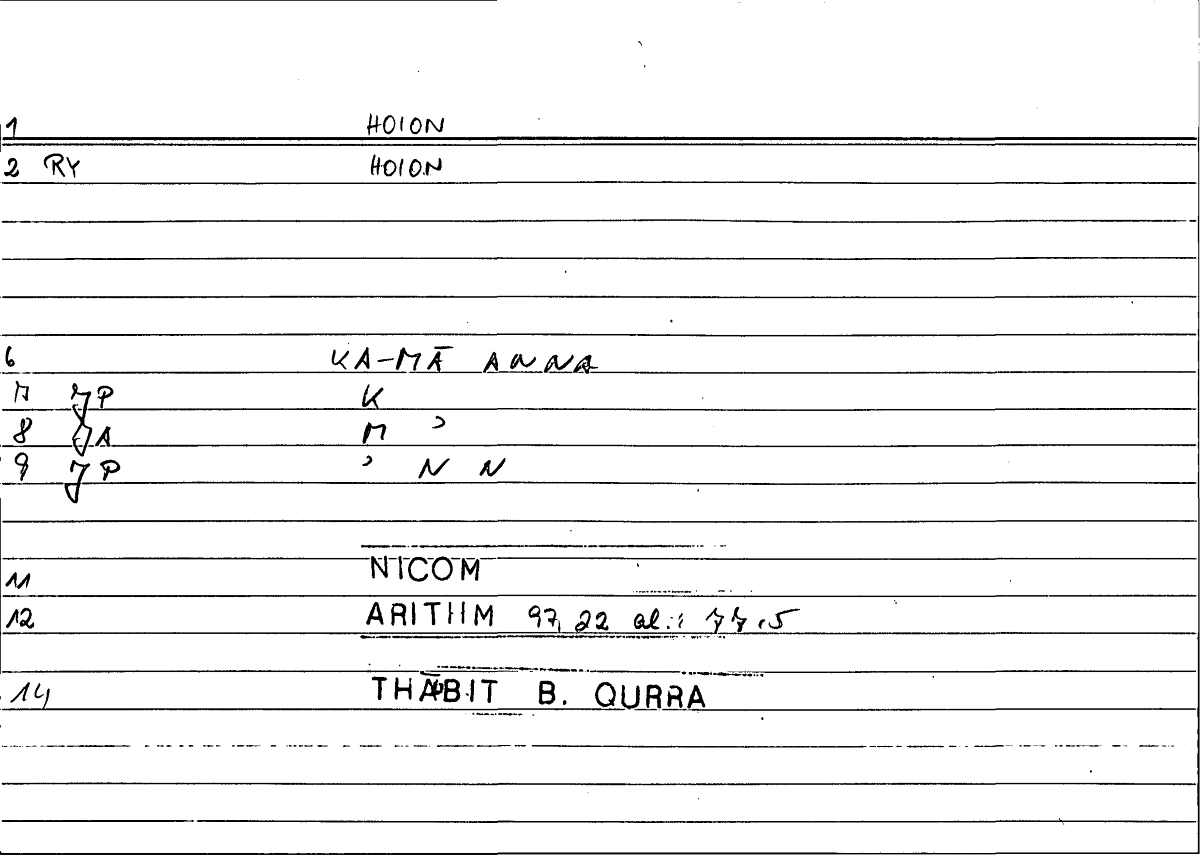 1 HOION
2 RY HOION
6 KA-MĀ ANNA
7 JP K
8 JA M ʾ
9 JP ʾ N N
11 NICOM
12 ARITHM 97, 22 al.: 77.5
14 THĀBIT B. QURRA